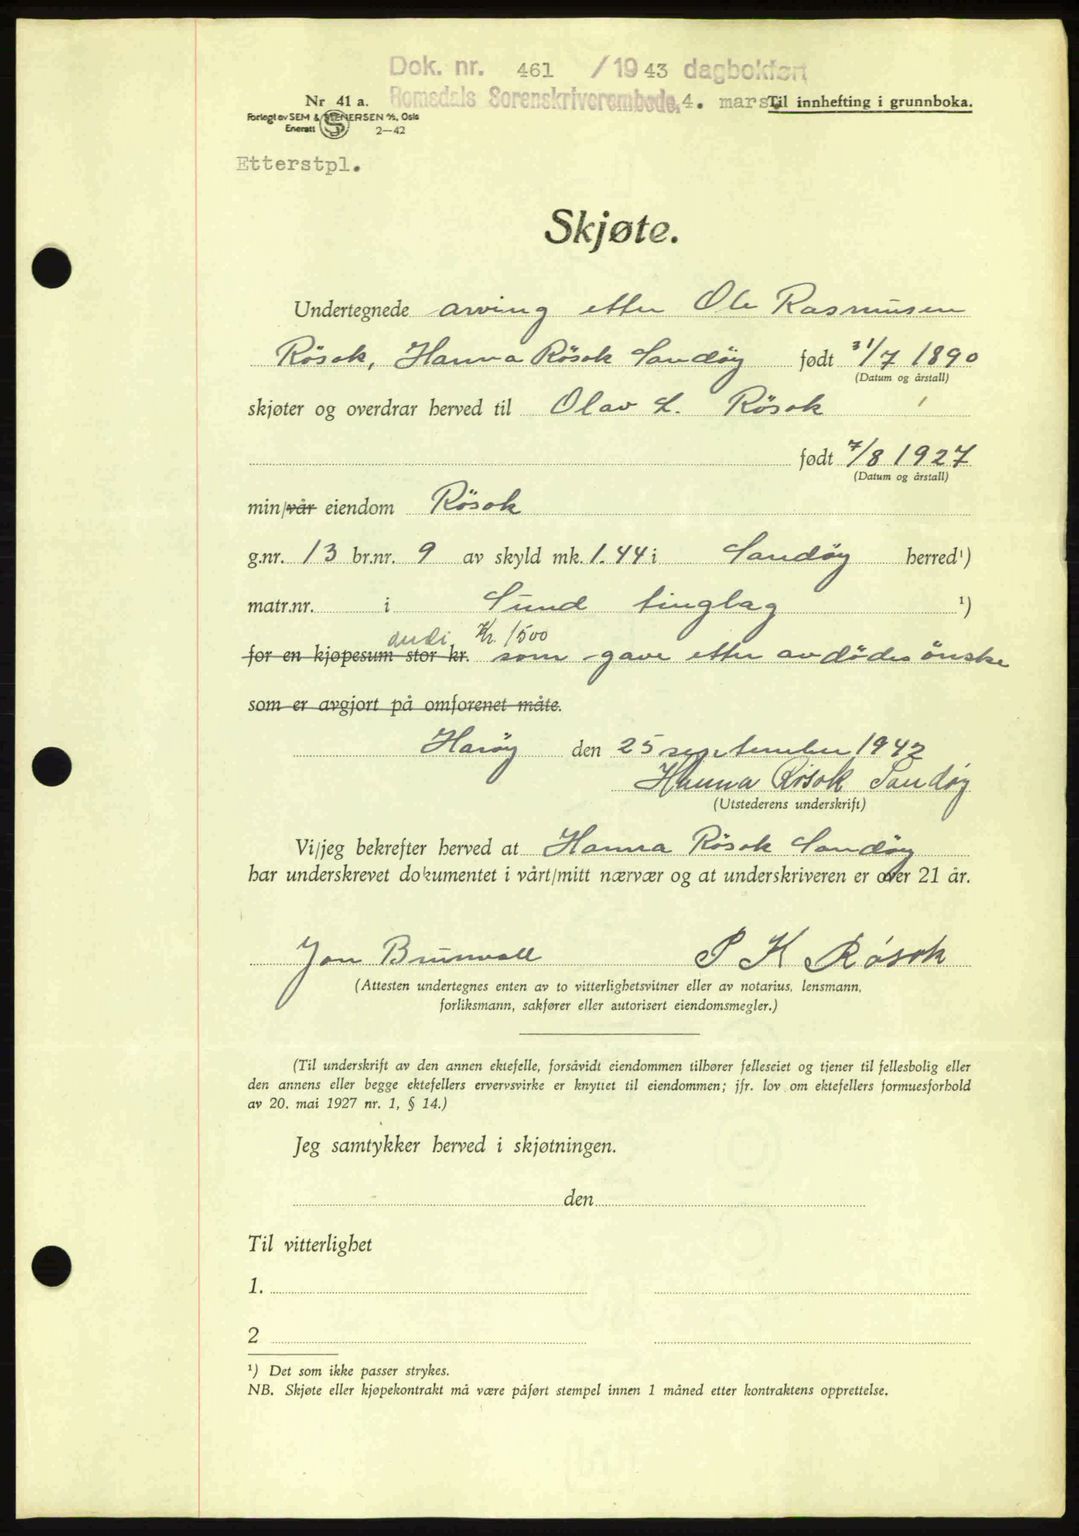 Dok. nr. 461 / 1943 dagbokført
Nr 41 a. Romsdals Sorenskriverembede, 4. mars. Til innhefting i grunnboka.
Forlegt av SEM & STENERSEN A/S, Oslo
Enerett S 2—42
Etterstpl.
Skjøte.
Undertegnede arving etter Ole Rasmusen
Røsok, Hanna Røsok Sandøy født 31/7 1890
(Datum og årstall)
skjøter og overdrar herved til Olav L. Røsok
født 7/8 1927
(Datum og årstall)
min/vår eiendom Røsok
g.nr. 13 br.nr. 9 av skyld mk. 1.44 i Sandøy herred¹)
matr.nr. i Sund tinglag ¹)
Kr. 1500
for en kjøpesum stor kr. som gave etter avdødes ønske
som er avgjort på omforenet måte.
Harøy den 25 september 1942
Hanna Røsok Sandøy
(Utstederens underskrift)
Vi/jeg bekrefter herved at Hanna Røsok Sandøy
har underskrevet dokumentet i vårt/mitt nærvær og at underskriveren er over 21 år.
Jon Brunvoll P K Røsok
(Attesten undertegnes enten av to vitterlighetsvitner eller av notarius, lensmann,
forliksmann, sakfører eller autorisert eiendomsmegler.)
(Til underskrift av den annen ektefelle, forsåvidt eiendommen tilhører felleseiet og tjener til fellesbolig eller
den annens eller begge ektefellers ervervsvirke er knyttet til eiendommen; jfr. lov om ektefellers formuesforhold
av 20. mai 1927 nr. 1, § 14.)
Jeg samtykker herved i skjøtningen.
den
Til vitterlighet
1.
2
¹) Det som ikke passer strykes.
NB. Skjøte eller kjøpekontrakt må være påført stempel innen 1 måned etter kontraktens opprettelse.